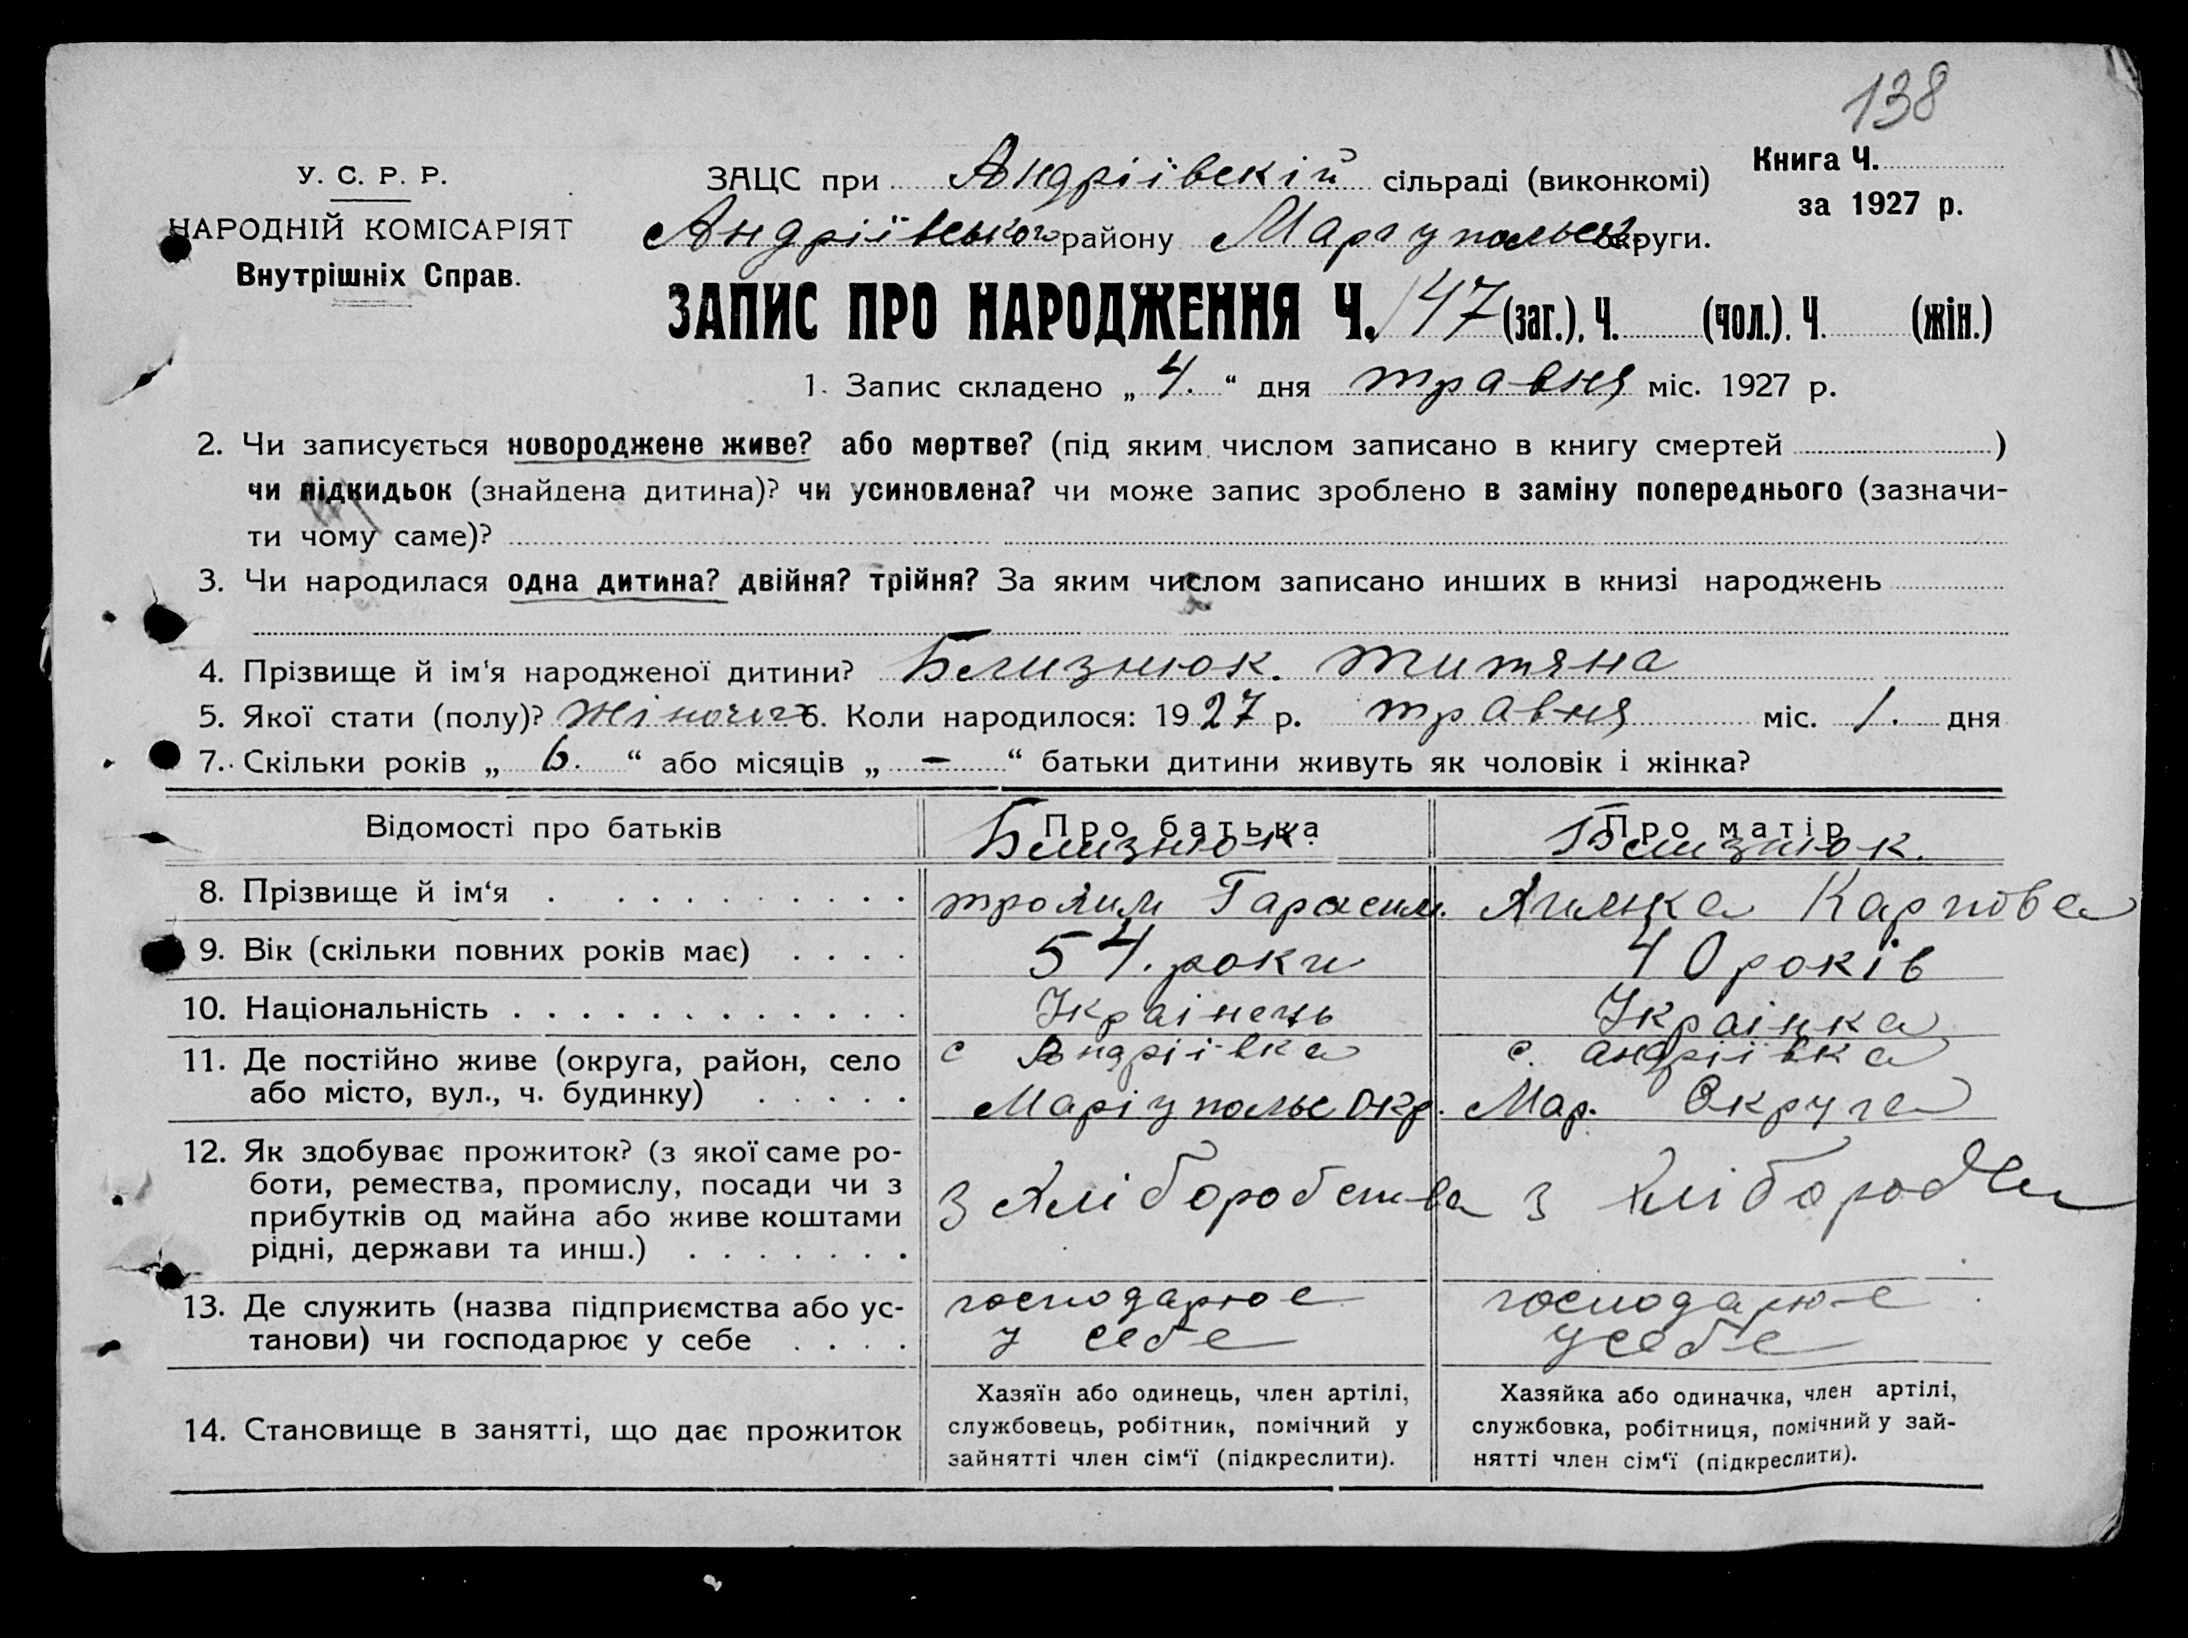 138
У. С. Р. Р.
НАРОДНІЙ КОМІСАРІЯТ
Внутрішніх Справ.
ЗАЦС при Андріївскій сільраді (виконкомі)
Андріївського району Маріупольськ округи.
Книга Ч.
за 1927 р.
ЗАПИС ПРО НАРОДЖЕННЯ Ч. 147 (заг.), Ч. (чол.). Ч. (жін.)
1. Запис складено „ 4. “ дня травня міс. 1927 р.
2. Чи записується новороджене живе? або мертве? (під яким числом записано в книгу смертей )
чи підкидьок (знайдена дитина)? чи усиновлена? чи може запис зроблено в заміну попереднього (зазначи-
ти чому саме)?
3. Чи народилася одна дитина? двійня? трійня? За яким числом записано инших в книзі народжень
4. Прізвище й ім‘я народженої дитини? Близнюк. Титяна
5. Якої стати (полу)? жіночого 6. Коли народилося: 1927 р. травня міс. 1. дня
7. Скільки років „ 6. “ або місяців „ — “ батьки дитини живуть як чоловік і жінка?
Відомості про батьків Про батька Про матір
Близнюк. Близнюк.
8. Прізвище й ім‘я . . . . . . . . . . Гарасим. Химка Карпова
9. Вік (скільки повних років має) . . . . 54. роки 40 років
10. Національність . . . . . . . . . . . . . Украінець Украінка
11. Де постійно живе (округа, район, село с Андріівка с. андріівка
або місто, вул., ч. будинку) . . . . . Маріупольс Окр. Мар. Округа
12. Як здобуває прожиток? (з якої саме ро-
боти, ремества, промислу, посади чи з
прибутків од майна або живе коштами
рідні, держави та инш.) . . . . . . .
з хліборобства з
13. Де служить (назва підприємства або ус- господарює господарює
танови) чи господарює у себе . . . . у себе у себе
14. Становище в занятті, що дає прожиток
Хазяїн або одинець, член артілі,
службовець, робітник, помічний у
зайнятті член сім‘ї (підкреслити).
Хазяйка або одиначка, член артілі,
службовка, робітниця, помічний у зай-
нятті член сім‘ї (підкреслити).